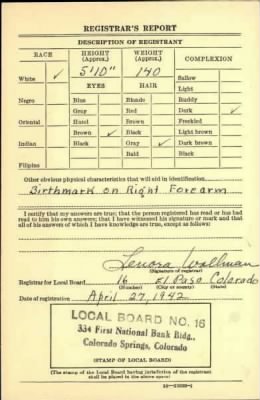 REGISTRAR'S REPORT
DESCRIPTION OF REGISTRANT
RACE HEIGHT (Approx.) WEIGHT (Approx.) COMPLEXION
White ✓ 5'10" 140 Sallow
EYES HAIR Light
Negro Blue Blonde Ruddy
Gray Red Dark ✓
Oriental Hazel Brown Freckled
Brown ✓ Black Light brown
Indian Black Gray ✓ Dark brown
Bald Black
Filipino
Other obvious physical characteristics that will aid in identification
Birthmark on Right Forearm
I certify that my answers are true; that the person registered has read or has had
read to him his own answers; that I have witnessed his signature or mark and that
all of his answers of which I have knowledge are true, except as follows:
Lenora Wollman
(Signature of registrar)
Registrar for Local Board 16 El Paso Colorado
(Number) (City or county) (State)
Date of registration April 27, 1942
LOCAL BOARD NO. 16
334 First National Bank Bldg.,
Colorado Springs, Colorado
(STAMP OF LOCAL BOARD)
(The stamp of the Local Board having jurisdiction of the registrant
shall be placed in the above space.)